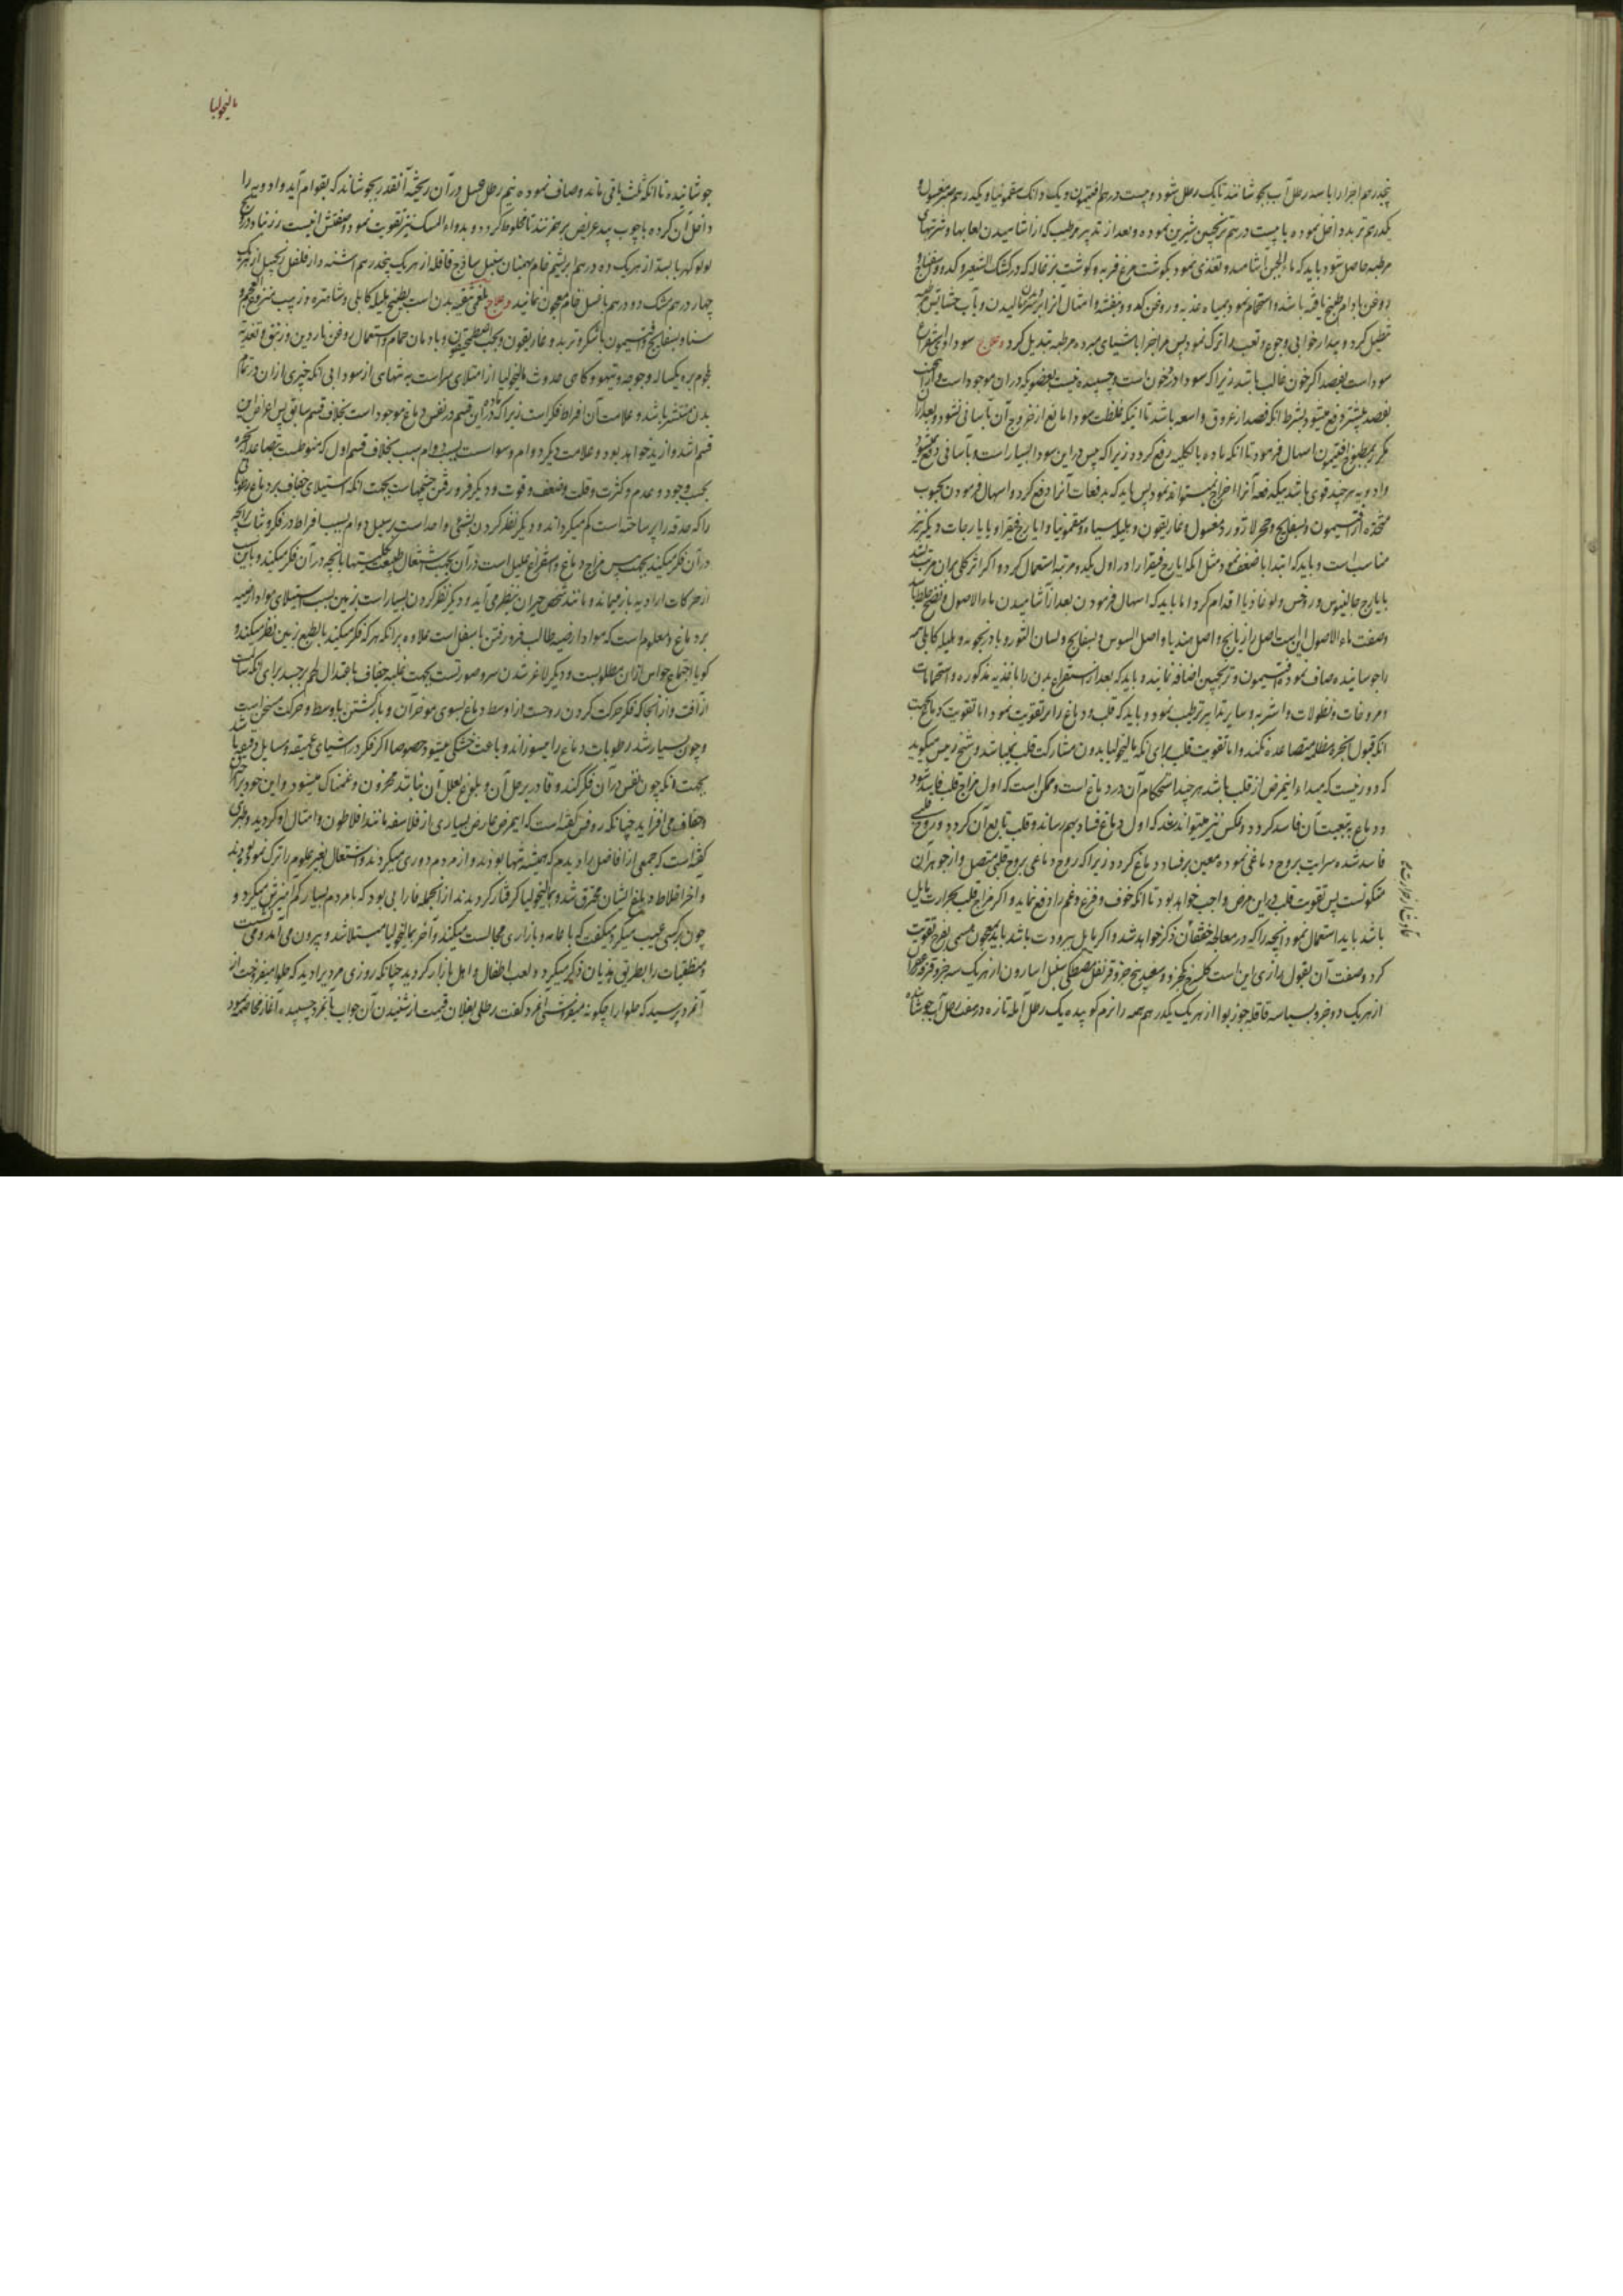 پنجدرهم اجزا را با سه رطل آب بجوشانند تا یک رطل شود و بیست درهم افتیمون و یک دانک سقمونیا و یکدرهم صبر مغسول
یکدرهم تربد داخل نموده با بیست درهم ترنجبین شیرین نموده و بعد از تدبیر مرطب که از آشامیدن لعابها و شربتهای
مرطبه حاصل شود باید که ماء الجبن آشامند و تغذی نمود بگوشت مرغ فربه و گوشت بزغاله که در کشک الشعیر و کدو و اسفناج
و روغن بادام طبخ یافته باشد و استحمام نمود بمیاه عذبه و روغن کدو و بنفشه و امثال آنرا بر سر مالیدن و بآب حشایش مرطبه
تنطیل کرد و بیدارخوابی و جوع و تعب را ترک نمود پس مزاج را باشیای مبرده مرطبه تبدیل کرد و علاج سوداوی استفراغ
سوداست بفصد اگر خون غالب باشد زیرا که سودا در خون است و چسپیده نیست بعضو که در آن موجود است
بفصد بیشتر دفع میشود بشرط آنکه فصد از عروق واسعه باشد تا اینکه غلظت سودا مانع از خروج آن بآسانی نشود و بعد از آن
مکرر بمطبوخ افتیمون اسهال فرمود تا آنکه ماده بالکلیه رفع گردد زیرا که یبس در این سودا بسیار است و بآسانی دفع نمیشود
و ادویه هرچند قوی باشد بیکدفعه آنرا اخراج نمیتواند نمود پس باید که بدفعات آنرا دفع کرد و اسهال فرمودن بحبوب
متخذه از افتیمون و بسفایج و حجر لاژورد مغسول و غاریقون و هلیله سیاه و سقمونیا و ایارج فیقرا و یا ایارجات دیگر نیز
مناسب است و باید که ابتدا باضعف نمود مثل آنکه ایارج فیقرا را در اول یکدو مرتبه استعمال کرد و اگر اثر کلی بر آن مترتب نشد
بایارج جالینوس و روفس و لوغاذیا اقدام کرد اما باید که اسهال فرمودن بعد از آشامیدن ماء الاصول و نضج خلط باشد
وصفت ماء الاصول این است اصل رازیانج و اصل هندبا و اصل السوس و بسفایج و لسان الثور و بادرنجویه و هلیله کابلی همه
را جوشانیده صاف نموده افتیمون و ترنجبین اضافه نمایند و باید که بعد از استفراغ بدن را باغذیه مذکوره و استحمامات
و مروخات و نطولات و اشربه و سایر تدابیر ترطیب نمود و باید که قلب و دماغ را بر تقویت نمود اما تقویت دماغ بجهت
آنکه قبول ابخره مظلمه متصاعده نکند و اما تقویت قلب برای آنکه مالیخولیا بدون مشارکت قلب نمیباشد و شیخ رئیس میگوید
که دور نیست که مبداء این مرض از قلب باشد هرچند استحکام آن در دماغ است و ممکن است که اول مزاج قلب فاسد شود
و دماغ بتبعیت آن فاسد گردد و بعکس نیز میتواند شد که اول دماغ فساد بهم رساند و قلب تابع آن گردد و روح قلبی
فاسد شده سرایت بروح دماغی نموده معین بر فساد دماغ گردد زیرا که روح دماغی بروح قلبی متصل و از جوهر آن
متکونست پس تقویت قلب در این مرض واجب خواهد بود تا آنکه خوف و فزع و غم را دفع نماید و اگر مزاج قلب بحرارت مایل
باشد باید استعمال نمود آنچه را که در معالجه خفقان ذکر خواهد شد و اگر مایل ببرودت باشد باید بمعجون مسمی بمفرح تقویت
کرد وصفت آن بقول رازی این است گلسرخ سعد پنج جزو قرنفل مصطکی سنبل اسارون از هریک سه جزو قرفه
از هریک دو جزو بسباسه قاقله جوزبوا از هریک یکدرهم همه را نرم کوبیده یک رطل آمله تازه در هفت رطل آب جوشانیده
مالیخولیا
جوشانیده تا آنکه ثلث باقی ماند و صاف نموده نیم رطل عسل در آن ریخته آنقدر بجوشانند که بقوام آید و ادویه را
داخل آن کرده با چوب بید عریض بر هم زنند تا مخلوط گردد و بدواء المسک نیز تقویت نمود وصفتش اینست زرنباد درونج
لولو کهربا بسد از هریک ده درهم ابریشم خام بهمنان سنبل ساذج قاقله از هریک پنجدرهم اشنه دارفلفل زنجبیل از هریک
چهار درهم مشک دو درهم با عسل خام معجون نمایند و علاج بلغمی تنقیه بدن است بطبیخ هلیله کابلی و شاهتره و زبیب منزوع العجم و
سنا و بسفایج و افتیمون با شکر و تربد و غاریقون و بحب اصطمخیقون و بادمان حمام و استعمال روغن ناردین و زنبق و تغذیه
بلحوم بره یکساله و جوجه و تیهو و گاهی حدوث مالیخولیا از امتلای سر است به تنهایی از سودا بی آنکه چیزی از آن در تمام
بدن منتشر باشد و علامت آن افراط فکر است زیرا که ماده این قسم در نفس دماغ موجود است بخلاف قسم سابق پس اعراض این
قسم اشد و ازید خواهد بود و علامت دیگر دوام وسواست بسبب دوام سبب بخلاف قسم اول که منوطست بتصاعد ابخره
بحسب وجود و عدم و کثرت و قلت و ضعف و قوت و دیگر فرو رفتن چشمهاست بجهت آنکه استیلای جفاف بر دماغ رطوباتی
را که حدقه را پر ساخته است کم میگرداند و دیگر نظر کردن بشیئی واحد است بر سبیل دوام بسبب افراط در فکر و ثبات بر آنچه
در آن فکر میکند بجهت یبس مزاج دماغ و استفراغ علیل است در آن بحسب اشتغال طبیعت بکلیتها بآنچه در آن فکر میکند و باین سبب
از حرکات ارادیه باز میماند و مانند شخص حیران بنظر می آید و دیگر نظر کردن بسیار است بزمین بسبب استیلای مواد ارضیه
بر دماغ و معلوم است که مواد ارضیه طالب فرو رفتن باسفل است علاوه بر آنکه هر که فکر میکند بالطبع بزمین نظر میکند و
گویا اجتماع حواس از آن مطلوبست و دیگر لاغر شدن سر و صورتست بجهت غلبه جفاف با اعتدال لحم بر جسد برای آنکه سالمست
از آفت و از آنجا که فکر حرکت کردن روحست از اوسط دماغ بسوی موخر آن و بازگشتن باوسط و حرکت مسخن است
و چون بسیار شد رطوبات دماغ را میسوزاند و باعث خشکی میشود خصوصا اگر فکر در اشیای عمیقه و مسایل دقیقه باشد
بجهت آنکه چون نفس در آن فکر کند و قادر بر حل آن و بلوغ بعلل آن نباشد محزون و غمناک میشود و این خود
جفاف می افزاید چنانکه روفس گفته است که این مرض عارض بسیاری از فلاسفه مانند افلاطون و امثال او گردید و طبری
گفته است که جمعی از افاضل را دیدم که همیشه تنها بودند و از مردم دوری میکردند و اشتغال بغیر علوم را ترک نموده بودند
و آخر اخلاط دماغ ایشان محترق شد و بمالیخولیا گرفتار گردیدند از آنجمله فارابی بود که با مردم بسیار کم آمیزش میکرد و
چون بر کسی عیب میگرفت میگفت که با عامه و بازاری مجالست میکند و آخر بمالیخولیا مبتلا شد و بیرون می آمد و می نشست
و منطقیات را بطریق هذیان ذکر میکرد و لعب اطفال و اهل بازار گردید چنانکه روزی مردیرا دید که حلوا میفروخت از
آنمرد پرسید که حلوا را چگونه میفروشی آنمرد گفت رطلی بفلان قیمت از شنیدن آن جواب بآنمرد چسپیده آغاز مخاصمه نمود